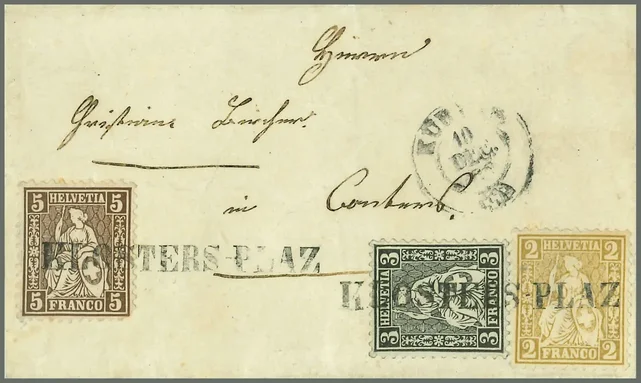 Herrn
Christian Bircher.
in Conters.
10
DEC.
5 HELVETIA 5
5 FRANCO 5
KLOSTERS-PLAZ
3 HELVETIA 3
3 FRANCO 3
2 HELVETIA 2
2 FRANCO 2
KLOSTERS-PLAZ